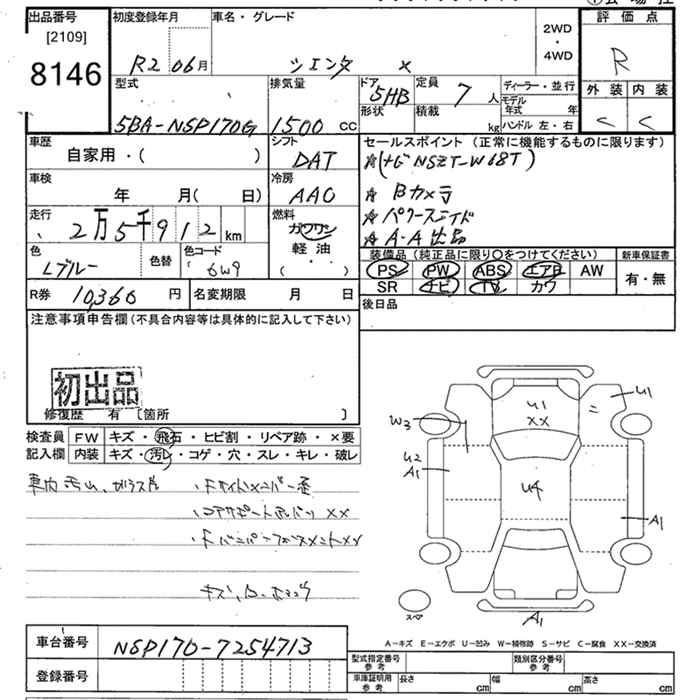 出品番号
[2109]
8146
初度登録年月
R2 06月
車名・グレード
シエンタ X
2WD
・
4WD
評価点
R
外装 内装
C C
型式
5BA-NSP170G
排気量
1500 cc
ドア
5HB
形状
定員
7 人
積載
kg
ディーラー・並行
モデル
年式 年
ハンドル 左・右
車歴
自家用・( )
シフト
DAT
車検
年 月( 日)
冷房
AAC
走行
2万5千912 km
燃料
ガソリン
軽油
・
( )
色
Lブルー
色替
色コード
6W9
R券 10,360 円
名変期限 月 日
セールスポイント(正常に機能するものに限ります)
☆(ナビNSZT-W68T)
☆ Bカメラ
☆ パワースライド
☆ A-A出品
装備品(純正品に限り○をつけてください)
新車保証書
PS PW ABS エアB AW
SR ナビ TV カワ
有・無
後日品
注意事項申告欄(不具合内容等は具体的に記入して下さい)
初出品
修復歴 有 [箇所 ]
検査員
記入欄
FW キズ・飛石・ヒビ割・リペア跡・×要
内装 キズ・汚レ・コゲ・穴・スレ・キレ・破レ
車内汚れ、ガラスキズ
・Fサイドメンバー歪
・コアサポートアッパーXX
U1
U1
XX
W3
U2
A1
U4
A1
A1
スペア
A-キズ E-エクボ U-凹み W-補修跡 S-サビ C-腐食 XX-交換済
車台番号 NSP170-7254713
登録番号
型式指定番号
参考
類別区分番号
参考
車庫証明用
参考
長さ cm 幅 cm 高さ cm